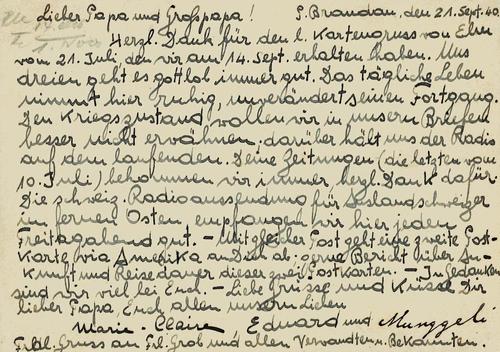 Lieber Papa und Großpapa! S. Brandau, den 21. Sept. 40.
Herzl. Dank für den l. Kartengruss von Elsa
vom 21. Juli, den wir am 14. Sept. erhalten haben. Uns
dreien geht es gottlob immer gut. Das tägliche Leben
nimmt hier ruhig, unverändert seinen Fortgang.
Den Kriegszustand wollen wir in unsern Briefen
besser nicht erwähnen, darüber hält uns der Radio
auf dem laufenden. Deine Zeitungen (die letzten vom
10. Juli) bekommen wir immer, herzl. Dank dafür.
Die schweiz. Radioaussendung für Auslandschweizer
im fernen Osten empfangen wir hier jeden
Freitagabend gut. – Mit gleicher Post geht eine zweite Post-
Karte via Amerika an Dich ab. gerne Bericht über An-
kunft und Reisedauer dieser zwei Postkarten. – In Gedanken
sind wir viel bei Euch. – Liebe Grüsse und Küsse Dir
lieber Papa, Euch allen unsern Lieben
Marie-Claire Eduard und Munggeli
Frdl. Gruss an Frl. Grob und allen Verwandten u. Bekannten.